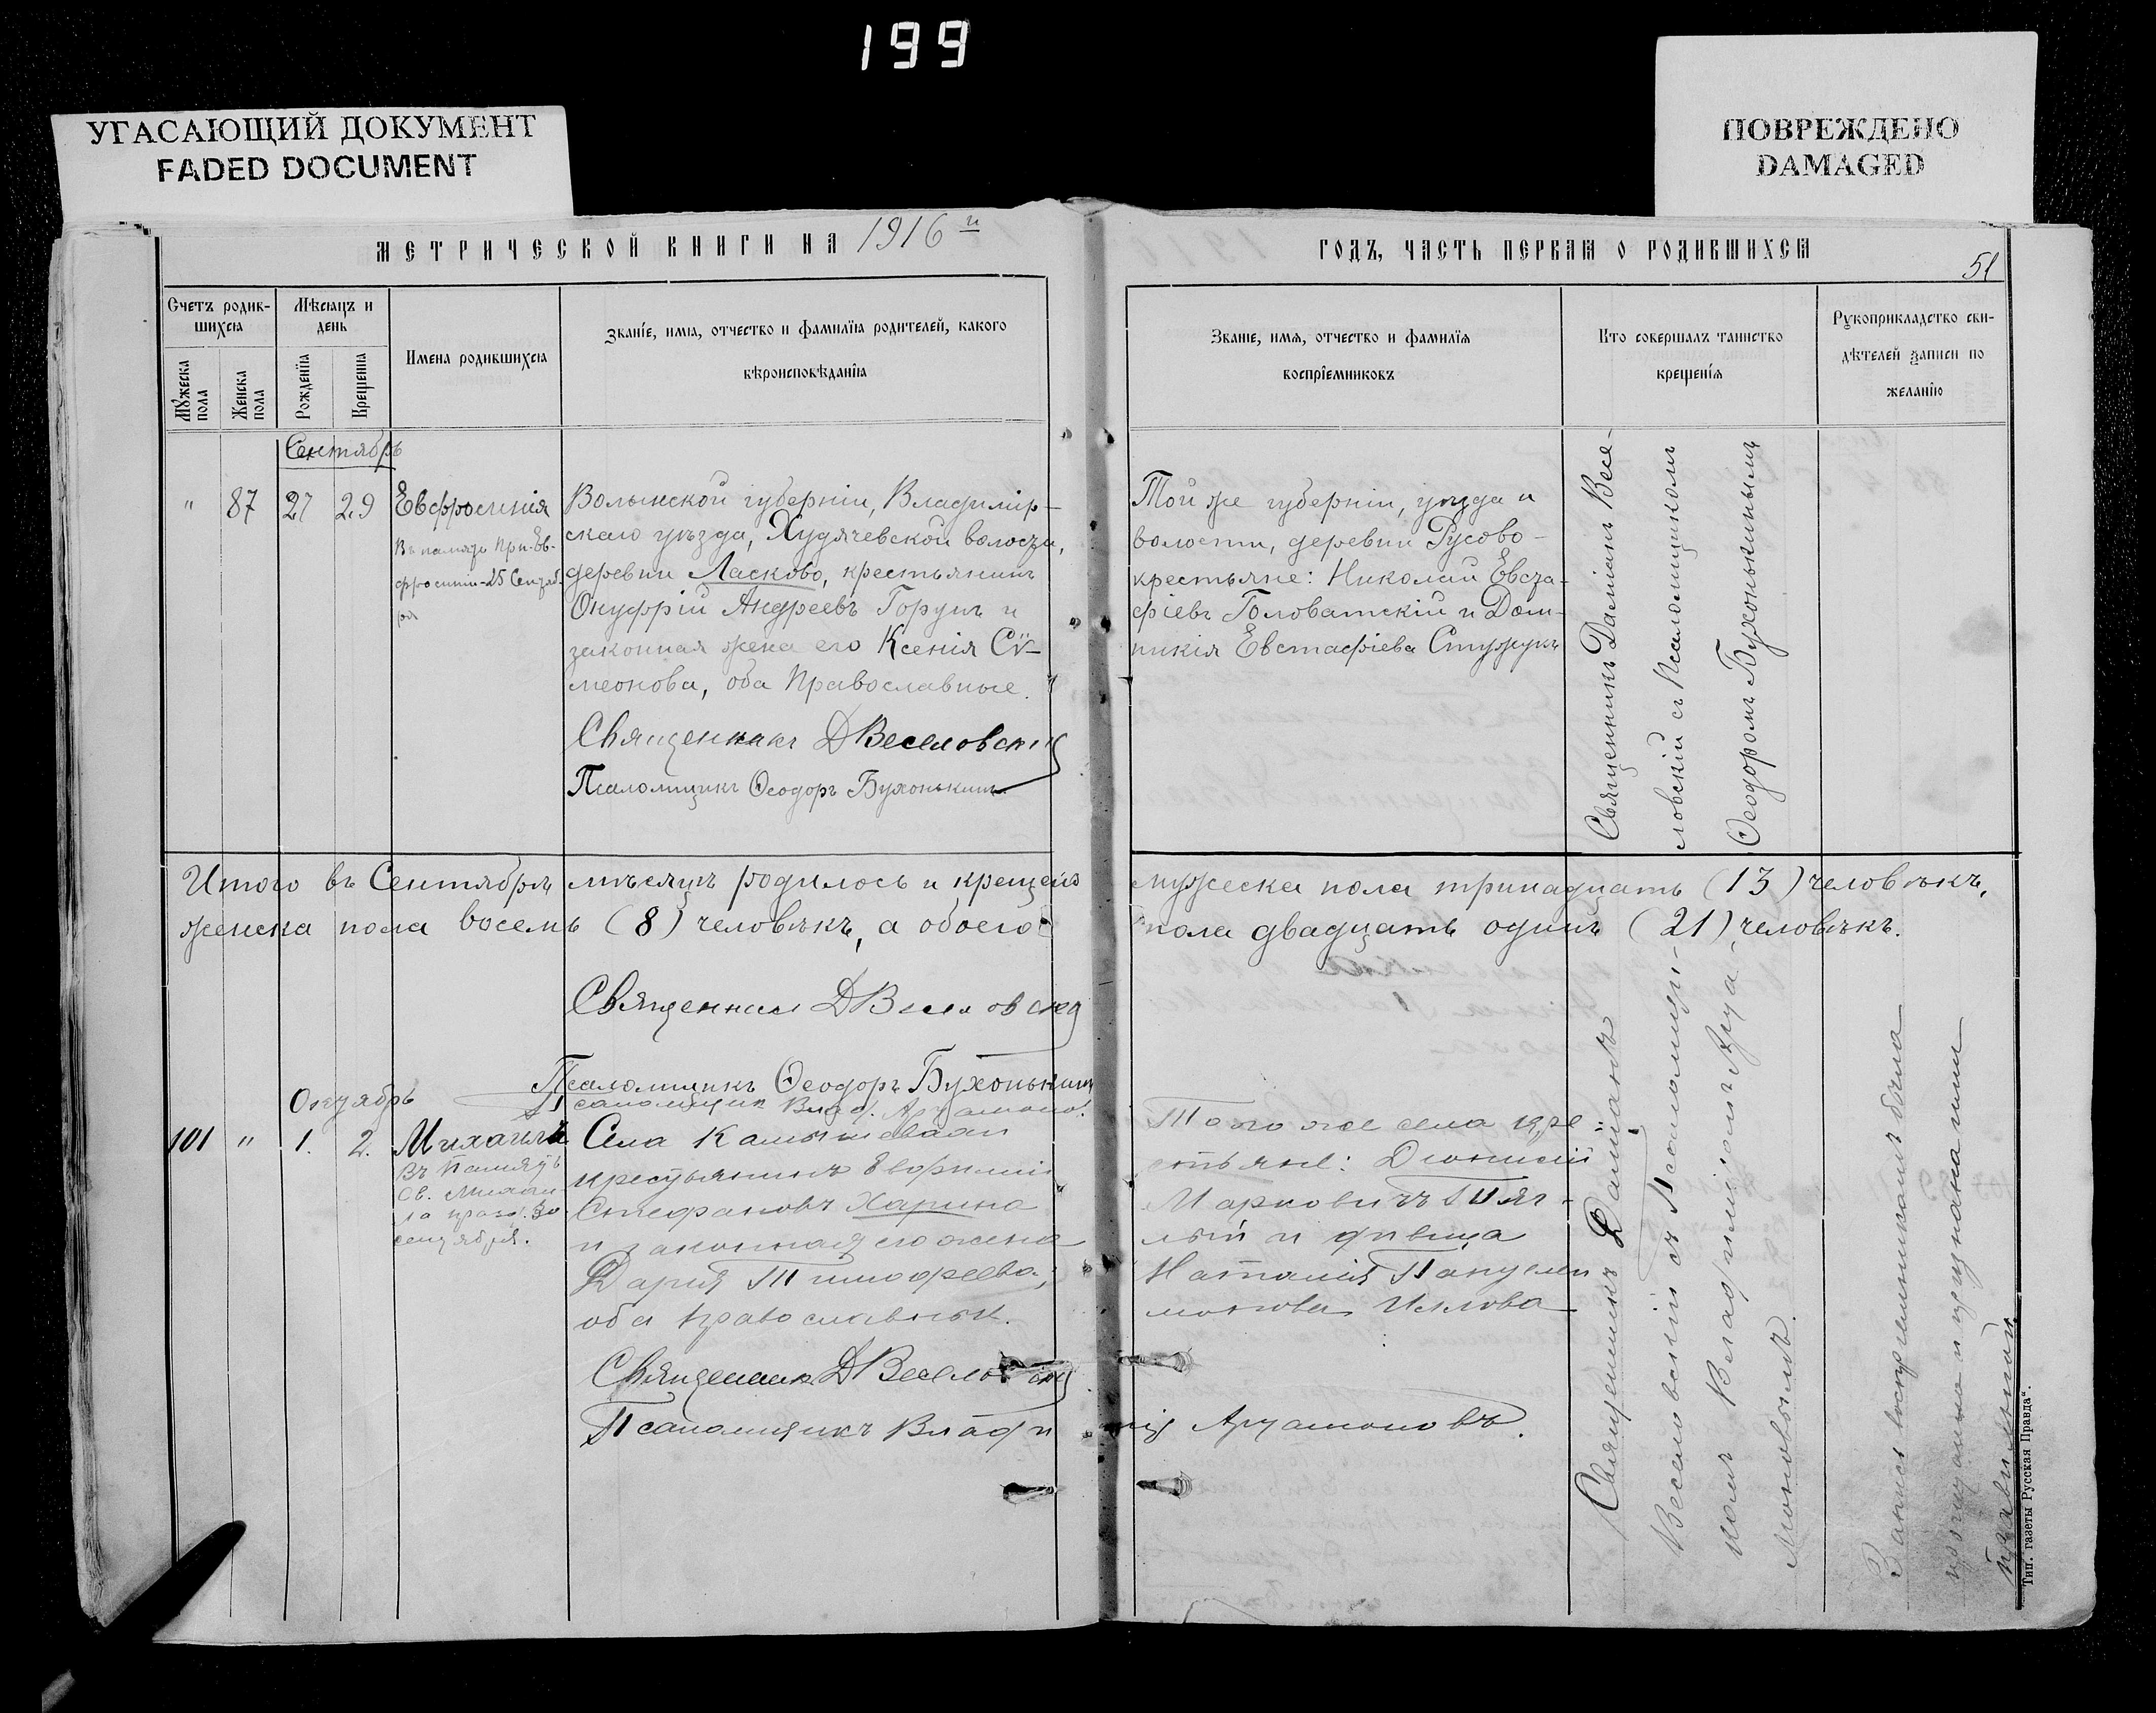 199
УГАСАЮЩИЙ ДОКУМЕНТ
FADED DOCUMENT
ПОВРЕЖДЕНО
DAMAGED
МЕТРИЧЕСКОЙ КНИГИ НА 1916 й
Счетъ родив-
шихся
Мѣсяцъ и
день
Имена родившихся
Званіе, имя, отчество и фамилія родителей, какого
вѣроисповѣданія
Мужеска
пола
Женска
пола
Рожденія
Крещенія
Сентябрь
" 87 27 29 Евфросинія
Въ память Прп. Ев-
фросиніи - 25 Сентяб-
ря
Волынской губерніи, Владимір-
скаго уѣзда, Худячевской волости,
деревни Ласково, крестьянинъ
Онуфрій Андреевъ Горунъ и
законная жена его Ксенія Сѵ-
меонова, оба Православные.
Священникъ Д Веселовскій
Псаломщикъ Ѳеодоръ Бухонькинъ
Итого въ Сентябрѣ мѣсяцѣ родилось и крещено
женска пола восемь (8) человѣкъ, а обоего
Священникъ Д Веселовскій
Псаломщикъ Ѳеодоръ Бухонькинъ
Псаломщикъ Влад. Артамоно.
Октябрь
101 " 1. 2. Михаилъ
Въ память
Св. Михаи-
ла празд. 30
сентября.
Села
крестьянинъ
Стефановъ Харина
и законная его жена
Дарія Тимофеева,
оба православные.
Священникъ Д Веселовскій
Псаломщикъ Влади
ГОДЪ, ЧАСТЬ ПЕРВАЯ О РОДИВШИХСЯ
51
Званіе, имя, отчество и фамилія
воспріемниковъ
Кто совершалъ таинство
крещенія
Рукоприкладство сви-
дѣтелей записи по
желанію
Той же губерніи, уѣзда и
волости, деревни Русово -
крестьяне: Николай Евста-
фіевъ Головатскій и Дом-
никія Евстафіева Стужукъ
Священникъ Даміанъ Весе-
ловскій съ Псаломщикомъ
Ѳеодоромъ Бухонькинымъ
мужеска пола тринадцать (13) человѣкъ,
пола двадцать одинъ (21) человѣкъ.
Того же села кре-
стьяне: Діонисій
Марковичъ
и дѣвица
Наталія Пантелеи
монова
мір Артамоновъ.
Священникъ Даміанъ
Веселовскій съ Псаломщи-
комъ Владиміромъ Арта-
моновымъ.
Запись воспріемникамъ была
прочитана и признана ими
правильной.
Тип. газеты Русская Правда".